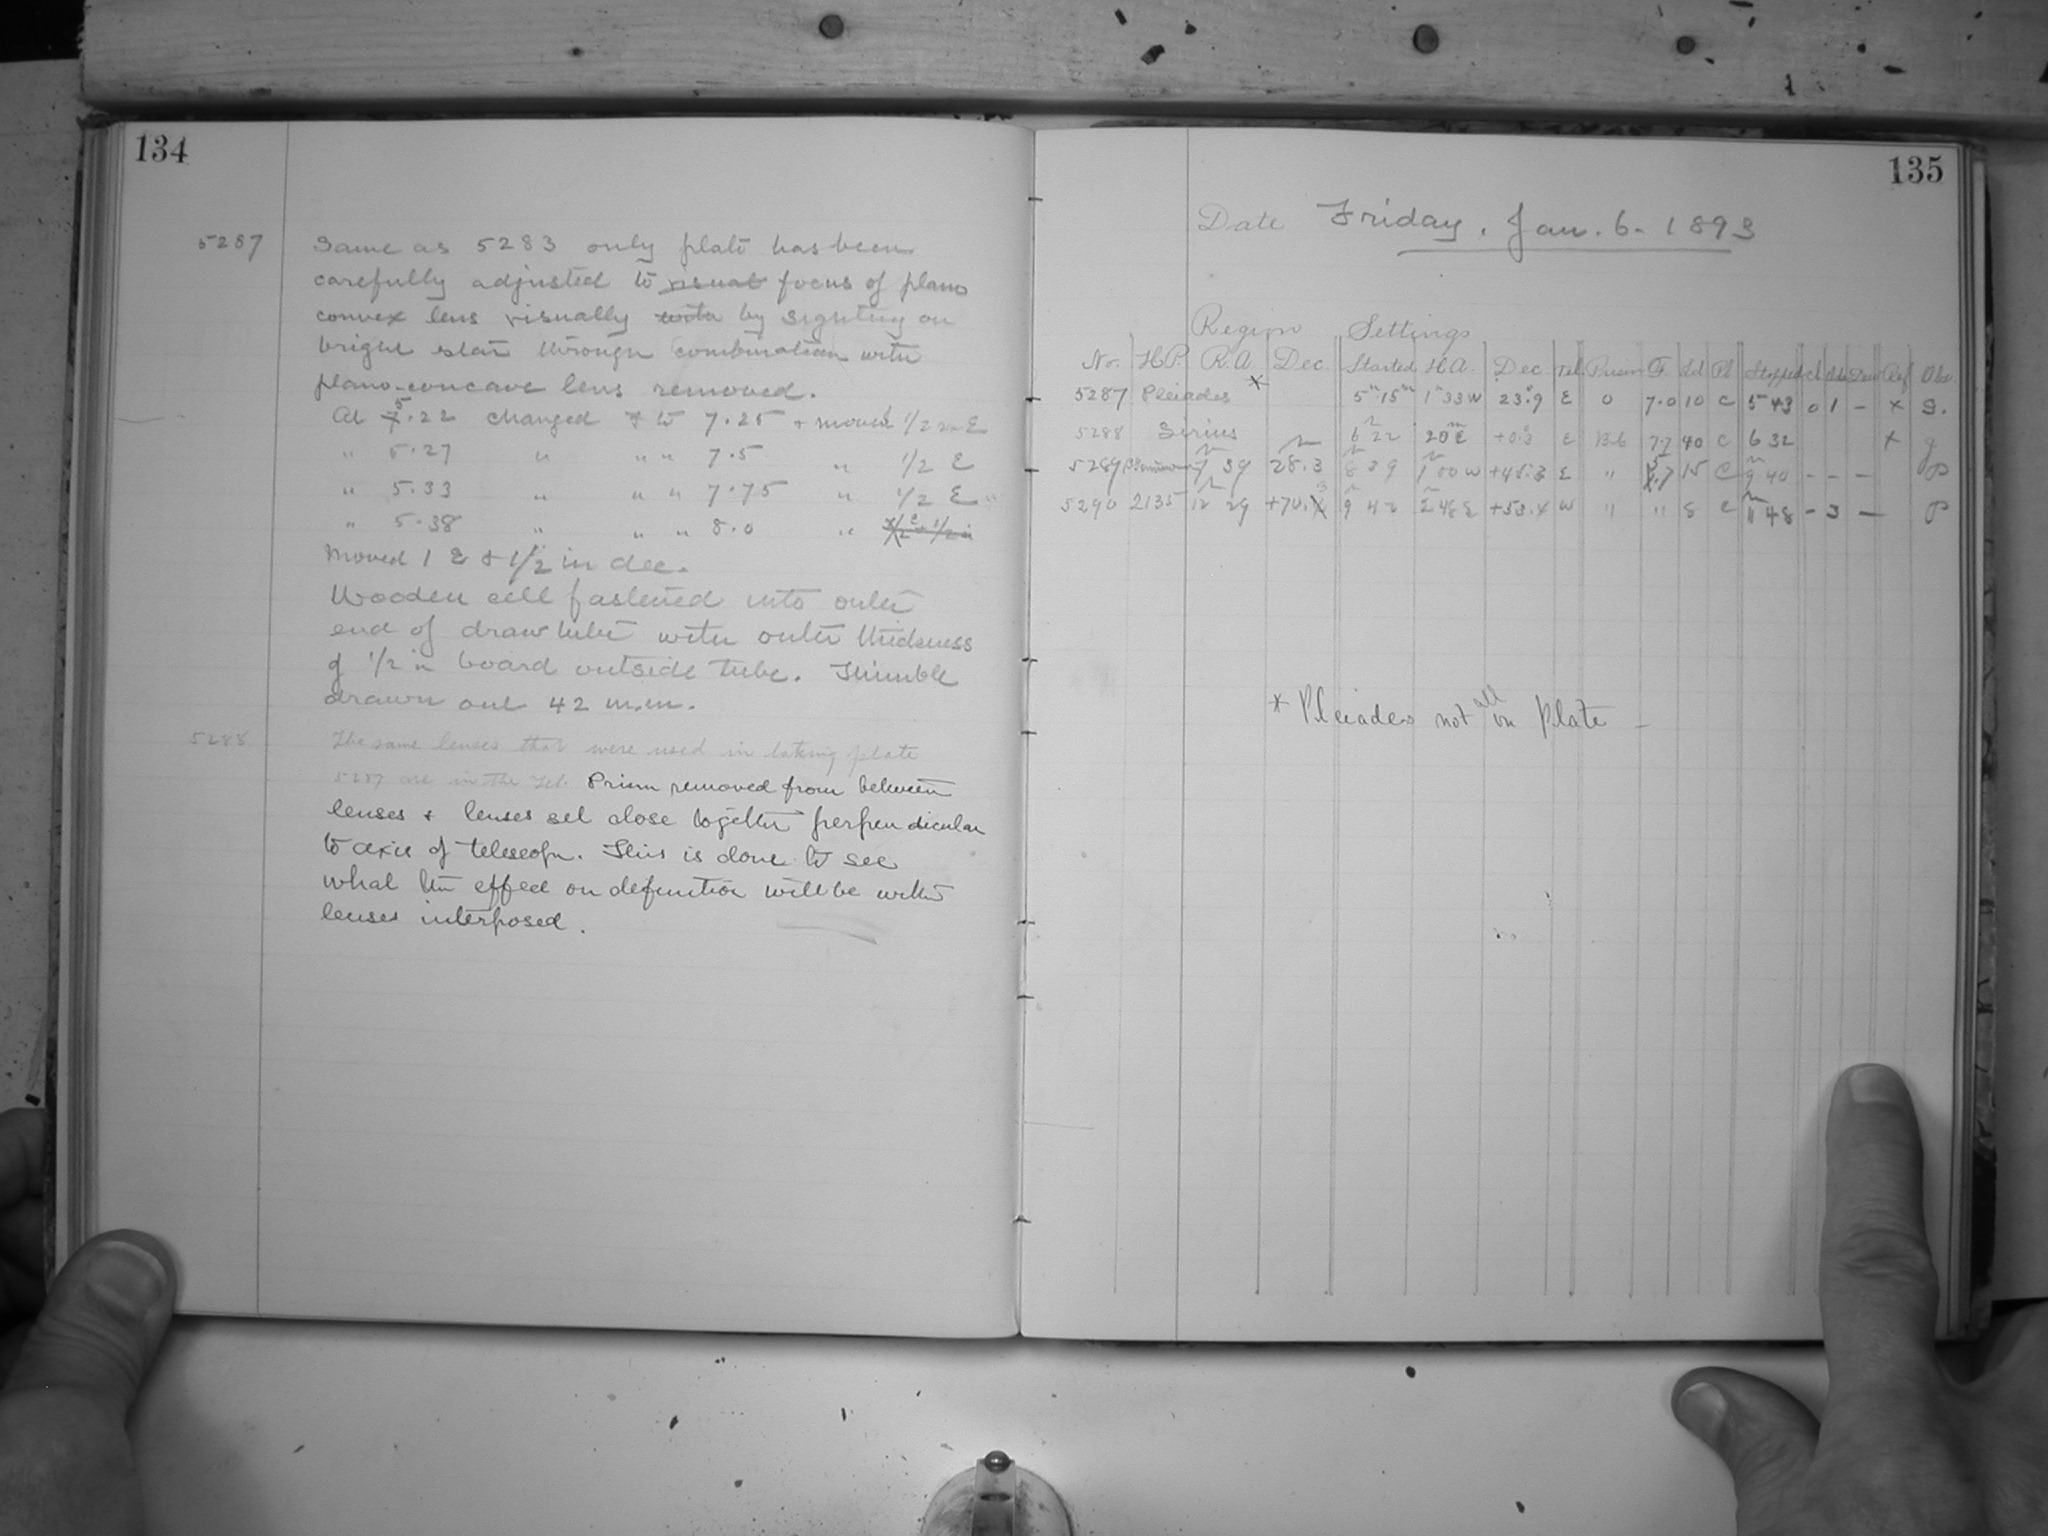 134
5287 Same as 5283 only plate has been
carefully adjusted to visual focus of plano
convex lens visually with by sighting on
bright star through combination with
plano-concave lens removed.
At 5.22 changed F to 7.25 + moved 1/2 in E
" 5.27 " " " 7.5 " 1/2 E
" 5.33 " " " 7.75 " 1/2 E
" 5.38 " " " 8.0 "
Moved 1 E & 1/2 in dec.
Wooden cell fastened into outer
end of draw tube with outer thickness
of 1/2 in board outside tube. Thimble
drawn out 42 m.m.
5288 The same lenses that were used in taking plate
5287 are in the Tel. Prism removed from between
lenses & lenses set close together perpendicular
to axis of telescope. This is done to see
what the effect on definition will be with
lenses interposed.
135
Date Friday. Jan. 6 - 1893
Region Settings
No. H.P. R.A. Dec. Started H.A. Dec. Tel. Prism F. Sd Pl Stopped Cl Obs.
5287 Pleiades * 5h 15m 1h 33 W 23.9 E 0 7.0 10 C 5 43 0 1 - x S.
5288 Sirius 6h 22 20m E +0.3 E 7.7 40 C 6 32 x g
5289 7h 39 28.3 8h 39 1h 00 W +48.3 E " 15 C 9h 40 - - - P
5290 2135 12h 29 +70.3 9h 42 2h 48 E +53.4 W " " 8 C 11h 48 - 3 - P
* Pleiades not all on Plate -